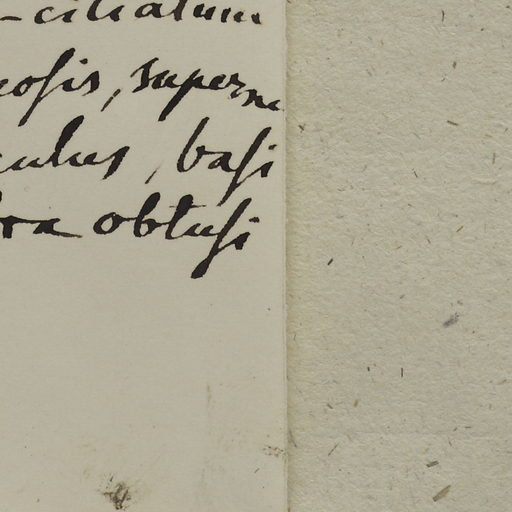 -ciliatum
cosis, superne
culus, basi
ra obtusi